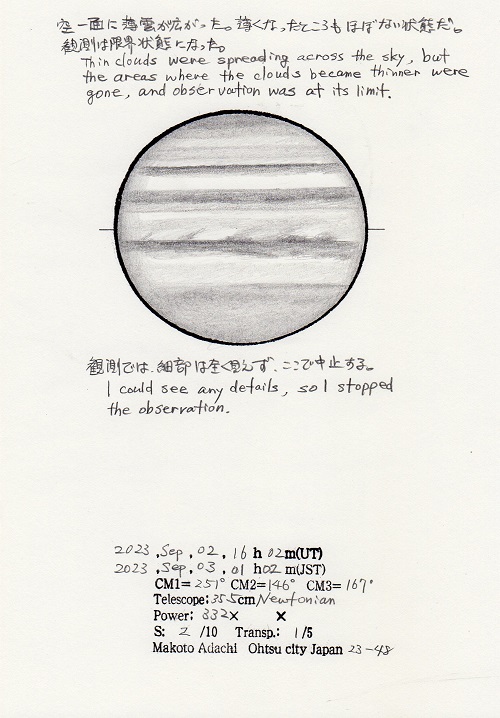 空一面に薄雲が広がった。薄くなったところもほぼない状態だ。
観測は限界状態になった。
Thin clouds were spreading across the sky, but
the areas where the clouds became thinner were
gone, and observation was at its limit.
観測では、細部は全く見えず、ここで中止する。
I could see any details, so I stopped
the observation.
2023 , Sep , 02 , 16 h 02 m(UT)
2023 , Sep , 03 , 01 h 02 m(JST)
CM1= 251° CM2= 146° CM3= 167°
Telescope: 35.5cm Newtonian
Power: 332× ×
S: 2 /10 Transp.: 1 /5
Makoto Adachi Ohtsu city Japan 23-48